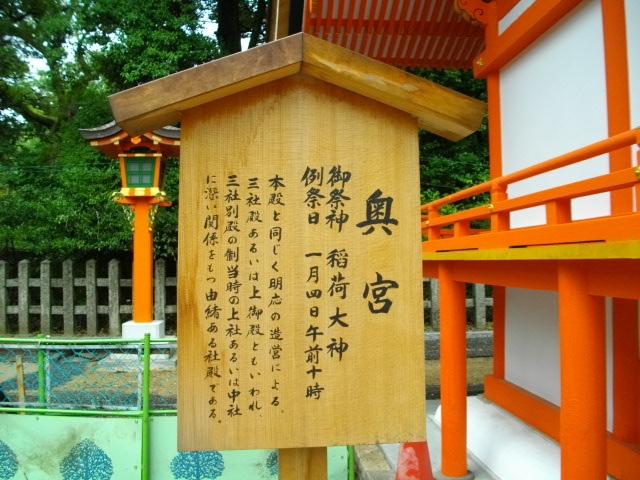 奥宮
御祭神 稲荷大神
例祭日 一月四日午前十時
本殿と同じく明応の造営による。
三社殿あるいは上御殿ともいわれ、
三社別殿の割当時の上社あるいは中社
に深い関係をもつ由緒ある社殿である。